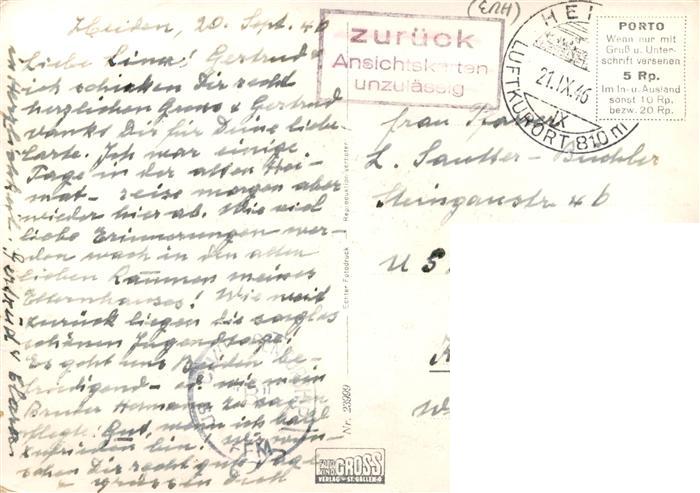 Heiden, 20. Sept. 46
Liebe Lina! Gertrud u
ich schicken Dir recht
herzlichen Gruss u Gertrud
dankt Dir für Deine liebe
Karte. Ich war einige
Tage in der alten Hei-
mat - reise morgen aber
wieder hier ab. Wie viel
liebe Erinnerungen wer-
den wach in den alten
lieben Räumen meines
Elternhauses! Wie weit
zurück liegen die sorglos
schönen Jugendtage!
Es geht uns Beiden be-
friedigend - od. wie mein
Bruder Hermann zu sagen
pflegt: Gut, wenn ich halb
zufrieden bin. Wir wün-
schen Dir recht gute Tage
& grüssen Dich
in Herzlichkeit Gertrud & Clara
zurück
Ansichtskarten
unzulässig
HEI
21.IX.46
IX
LUFTKURORT 810 m
PORTO
Wenn nur mit
Gruß u. Unter-
schrift versehen
5 Rp.
Im In- u. Ausland
sonst 10 Rp.
bezw. 20 Rp.
Frau
L. Sautter-Büchler
Steingaustr. 46
U S
Reproduktion verboten
Echter Fotodruck
Nr. 23999
FOTO
UND
GROSS
VERLAG - ST. GALLEN